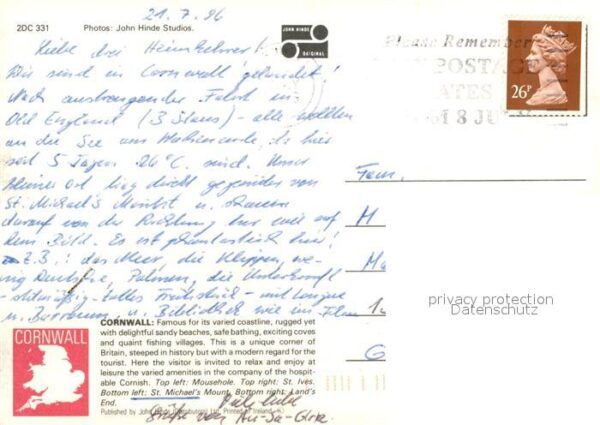 21.7.96
2DC 331 Photos: John Hinde Studios.
JOHN HINDE
ORIGINAL
Please Remember
POSTAGE
ATES
8 JU
26P
Liebe drei Heimkehrer!
Wir sind in Cornwall gelandet!
Nach anstrengender Fahrt in
Old England (3 Staus) - alle wollten
an die See am Wochenende, da hier
seit 5 Tagen 26°C sind. Unser
kleiner Ort liegt direkt gegenüber von
St. Michael's Mount u. schauen
darauf von der Richtung her wie auf
dem Bild. Es ist phantastisch hier!
z.B.: das Meer, die Klippen, we-
nig Deutsche, Palmen, die Unterkunft
- tolles Frühstück - mit Lounge
u. Barraum u. Bibliothek wie im Film
Fam.
M
Ma
1
G
privacy protection
Datenschutz
CORNWALL
CORNWALL: Famous for its varied coastline, rugged yet
with delightful sandy beaches, safe bathing, exciting coves
and quaint fishing villages. This is a unique corner of
Britain, steeped in history but with a modern regard for the
tourist. Here the visitor is invited to relax and enjoy at
leisure the varied amenities in the company of the hospit-
able Cornish. Top left: Mousehole. Top right: St. Ives.
Bottom left: St. Michael's Mount. Bottom right: Land's
End.
Published by John Hinde (Distributors) Ltd. Printed in Ireland.
Grüße von